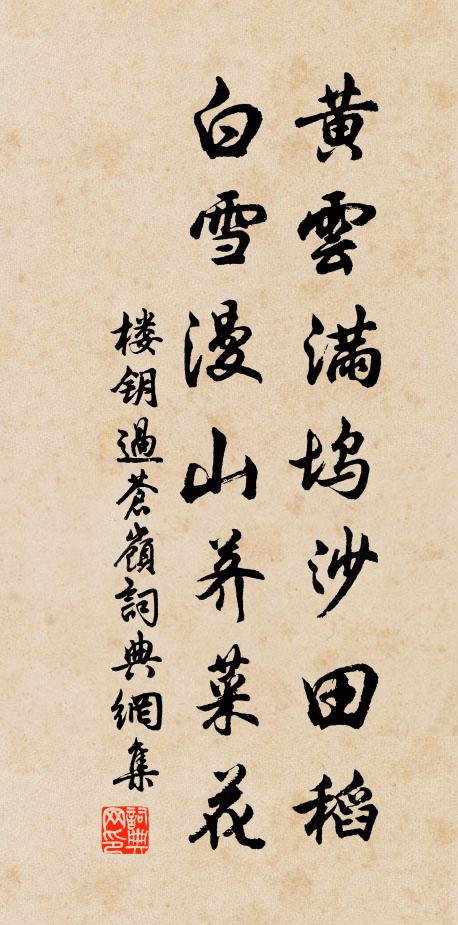 黄雲滿塢沙田稻
白雪漫山荞菜花
楼钥過蒼嶺詞典網集
詞典网印